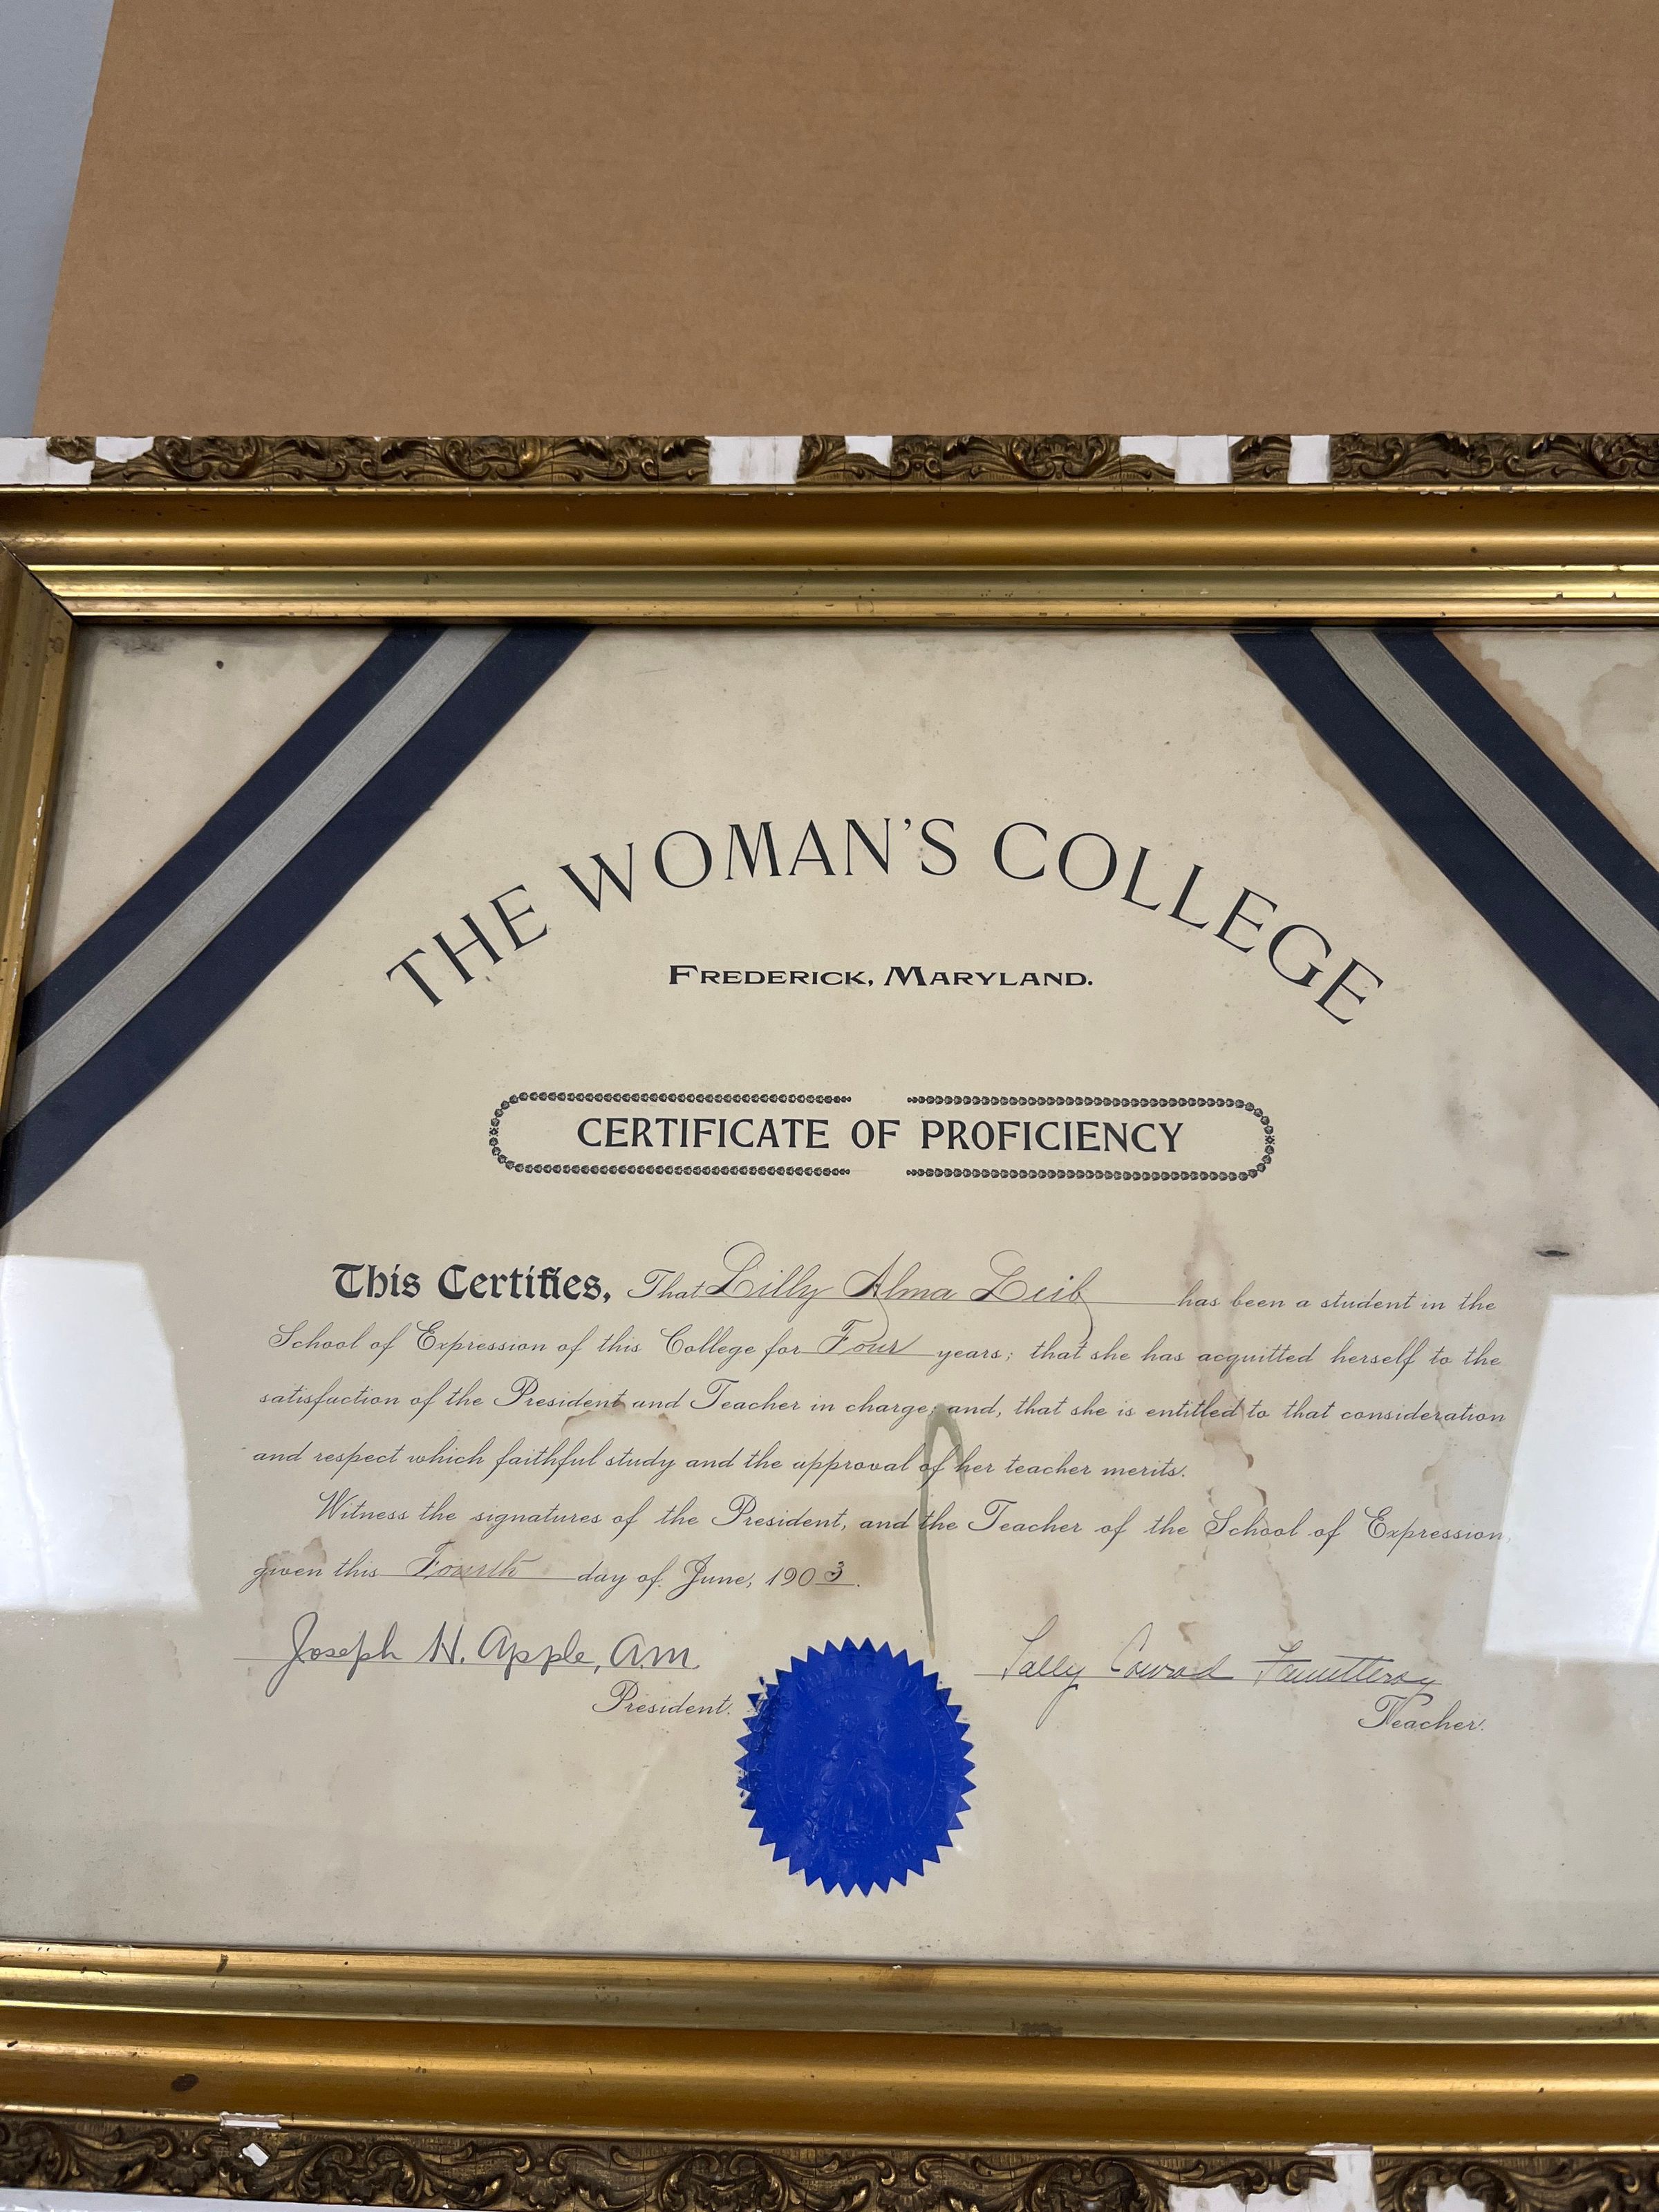 THE WOMAN'S COLLEGE
FREDERICK, MARYLAND.
CERTIFICATE OF PROFICIENCY
This Certifies, That Lilly Alma Leib has been a student in the
School of Expression of this College for Four years; that she has acquitted herself to the
satisfaction of the President and Teacher in charge; and, that she is entitled to that consideration
and respect which faithful study and the approval of her teacher merits.
Witness the signatures of the President, and the Teacher of the School of Expression,
given this Fourth day of June, 1903.
Joseph H. Apple, A.M.
President.
Sally Conrad Fauntleroy
Teacher.